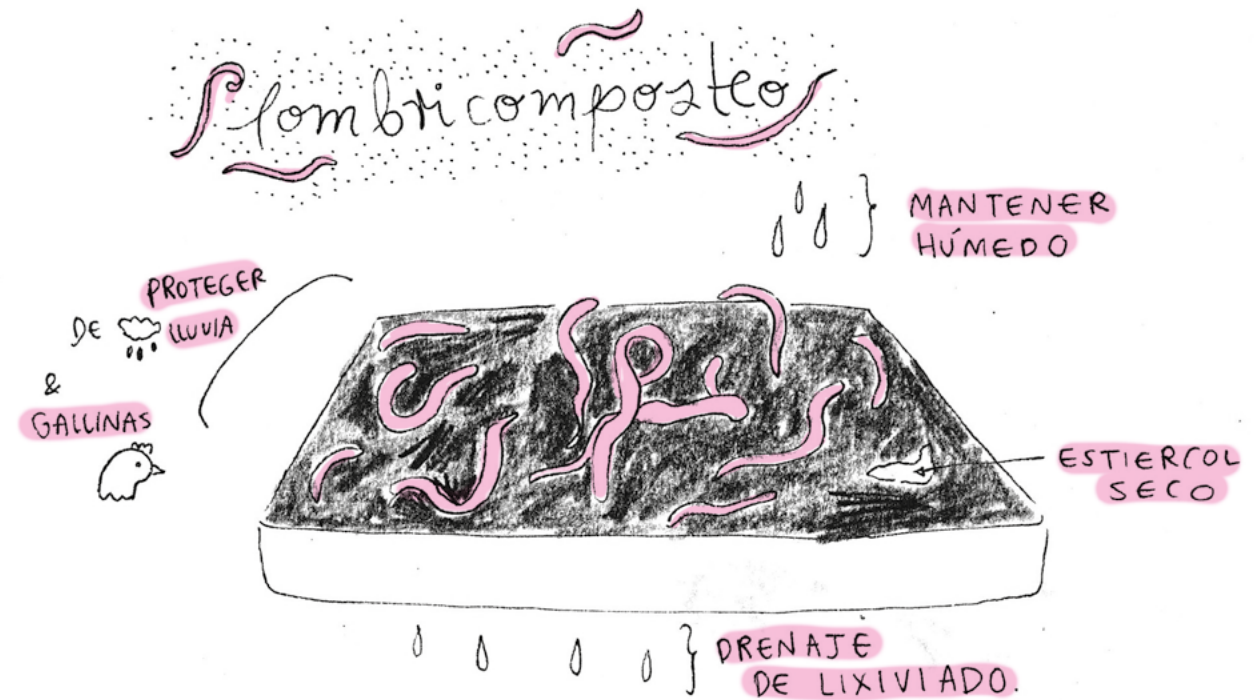 lombricomposteo
MANTENER
HÚMEDO
PROTEGER
DE LLUVIA
&
GALLINAS
ESTIERCOL
SECO
DRENAJE
DE LIXIVIADO.